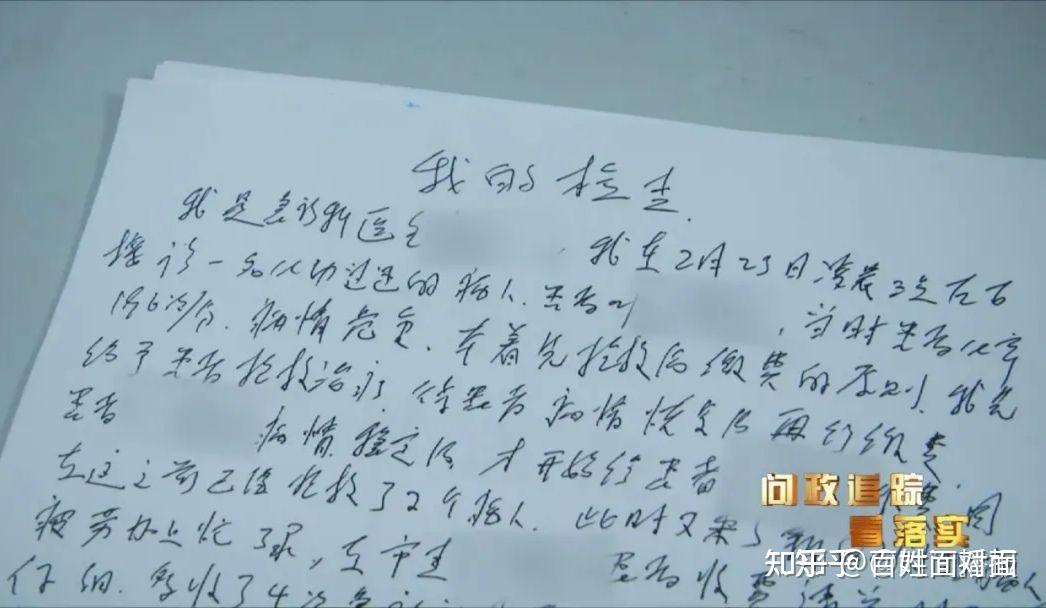 我的检查
我是急诊科医生 我在2月23日凌晨3点左右
接诊一名心动过速的病人.患者叫 ,当时患者心率
196次/分.病情危重.本着先抢救后缴费的原则,我先
给予患者抢救治疗,待患者病情恢复后再行缴费.
患者 病情稳定后才开始给患者 缴费,因
在这之前已经抢救了2个病人.此时又来了
疲劳加上忙了,在审查 患者收费清单
仔细.多收了4次
问政追踪
看落实
知乎 @百姓面对面